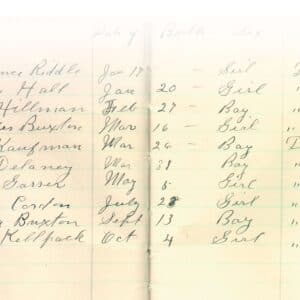 Date of Birth Sex
Riddle Jan 17 — Girl
Hall Jan 20 — Girl "
Hillman Feb 27 — Boy "
Buxton Mar 16 — Girl "
Kaufman Mar 26 — Boy
Delaney Mar 31 Boy "
Gasser May 5 Girl "
Cordon July 28 Girl "
Buxton Sept 13 Boy "
Kellpack Oct 4 Girl "